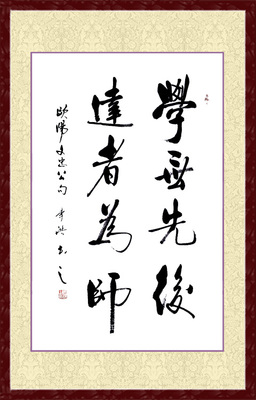 學無先後
達者為師
歐陽文忠公句
書之